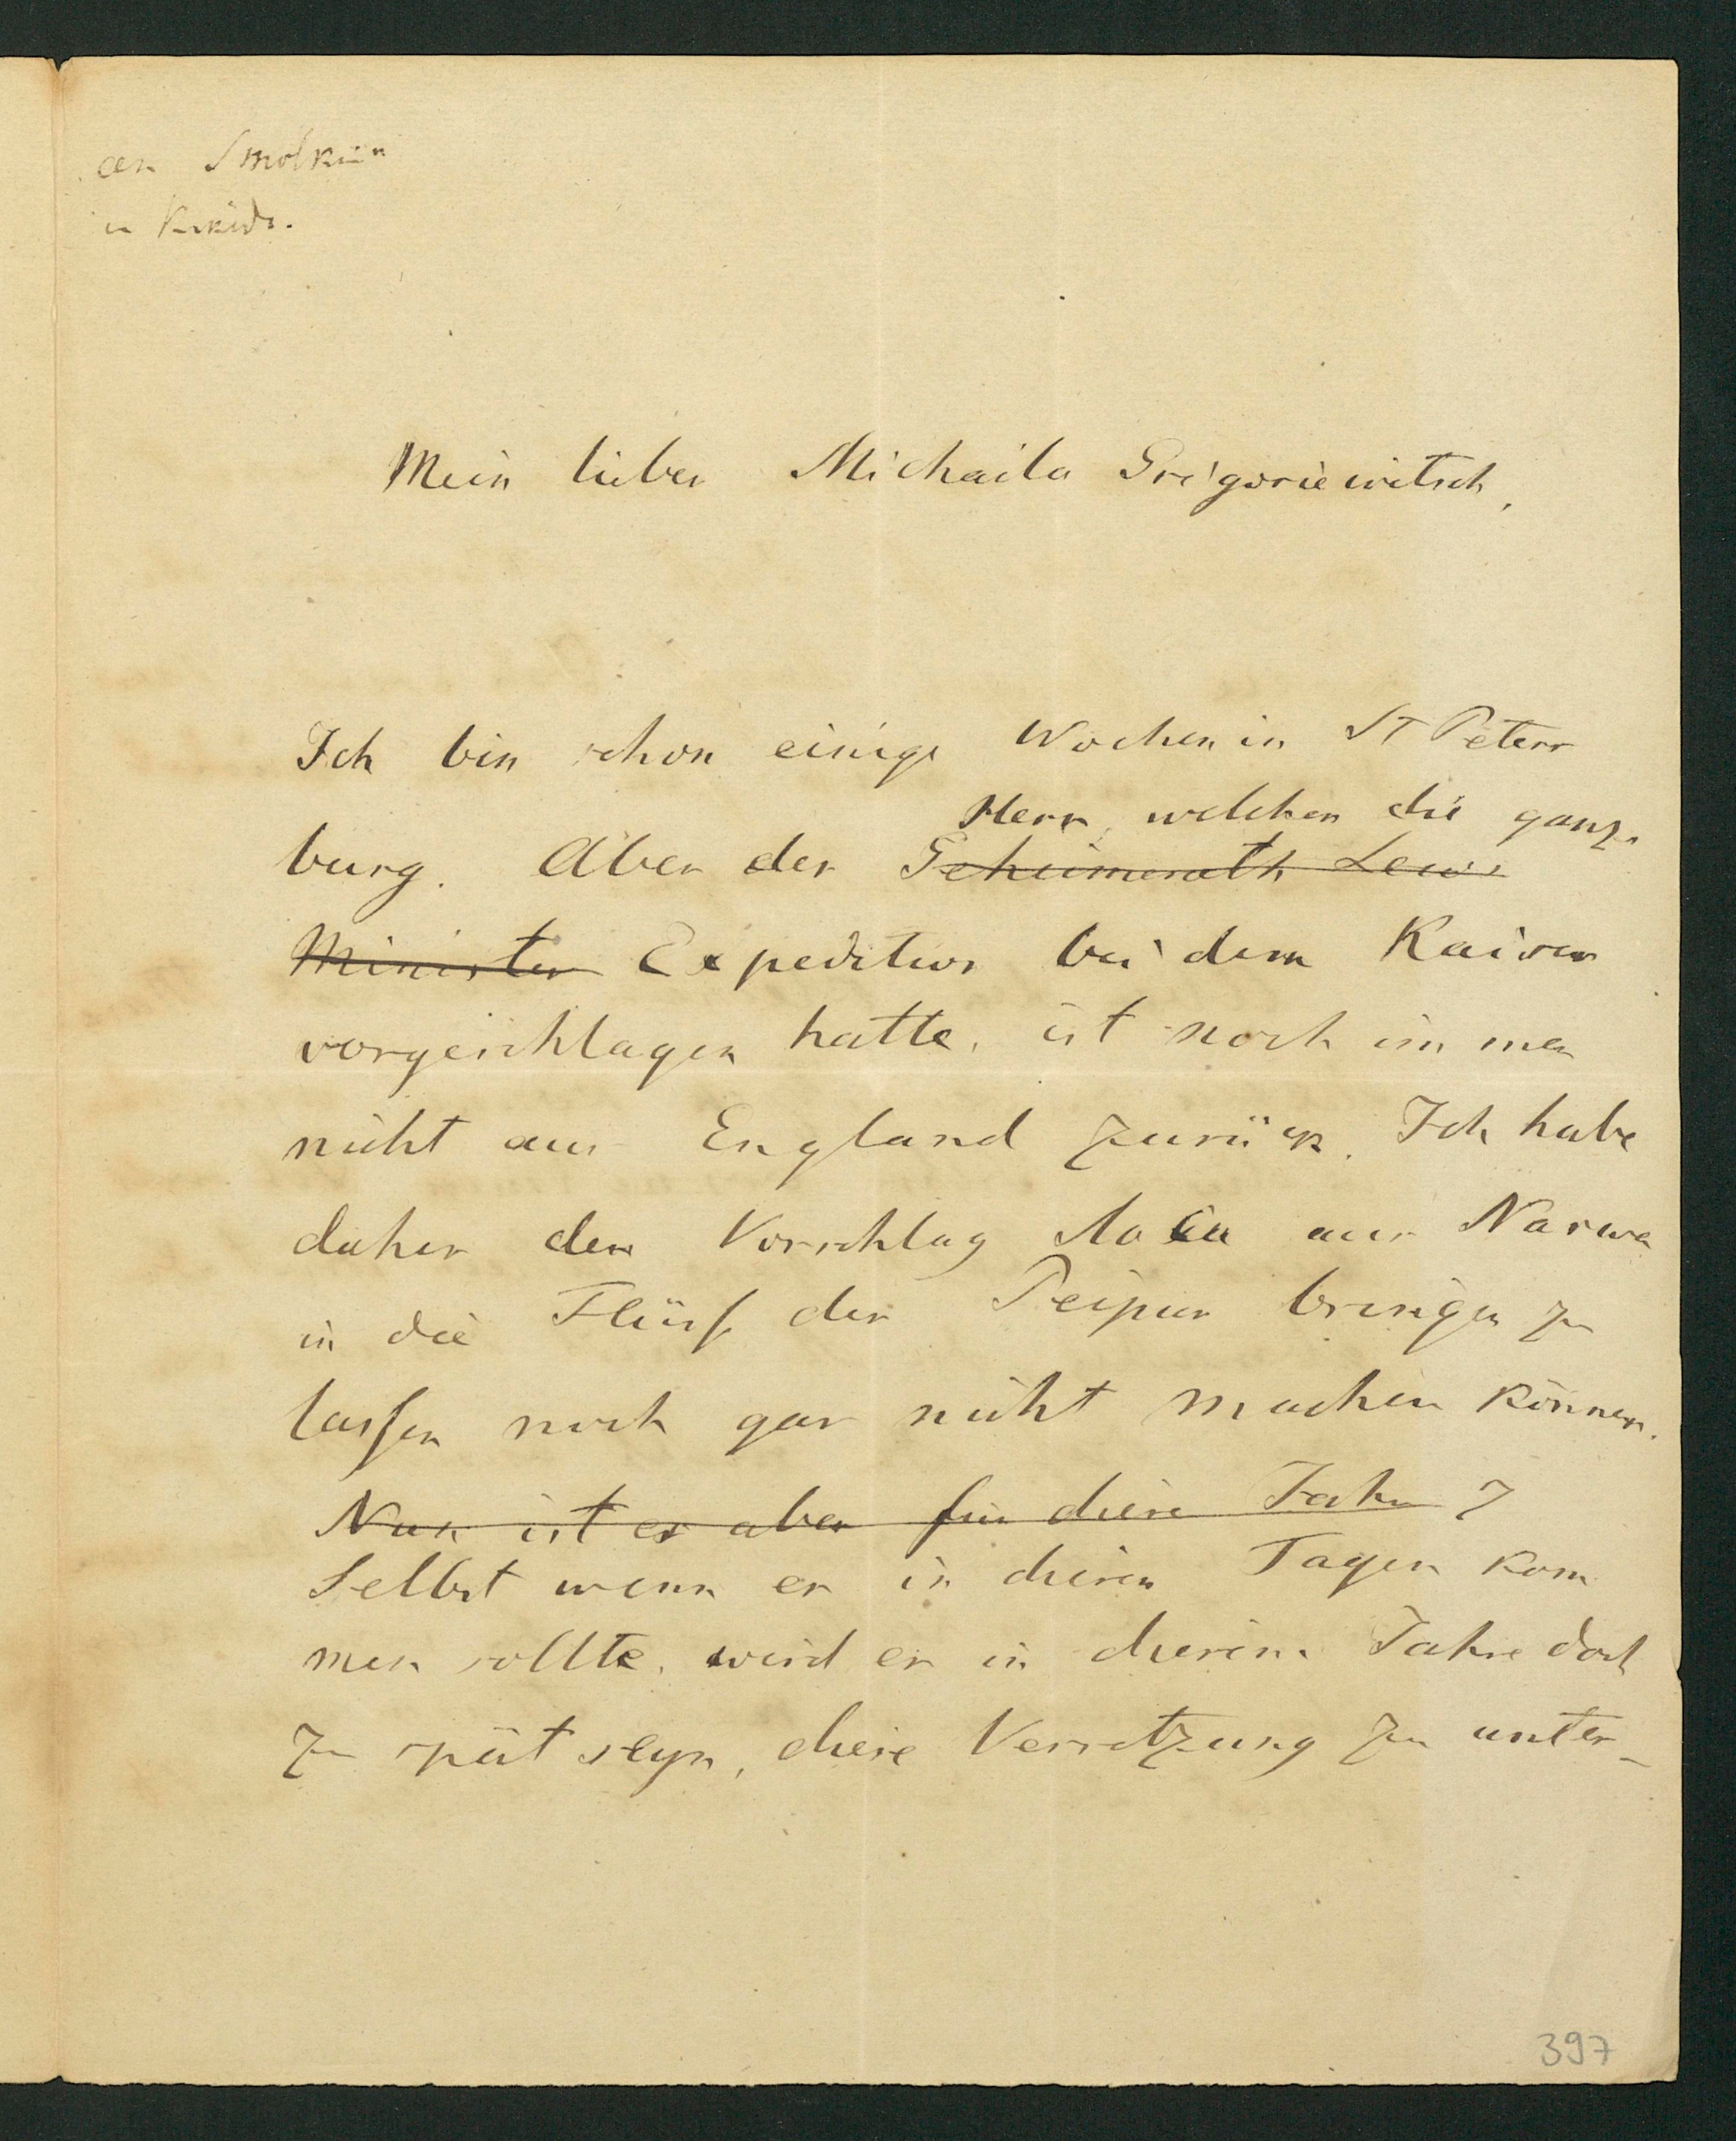 an Smolkin
in
Mein lieber Michaila Grigoriewitsch,
Ich bin schon einige Wochen in St Peters
Herr, welcher die ganze
burg. Aber der Geheimerath Lewi
Minister Expedition bei dem Kaiser
vorgeschlagen hatte, ist noch immer
nicht aus England zurück. Ich habe
daher den Vorschlag aus Narwa
in die Flüsse des Peipus bringen zu
lassen noch gar nicht machen können.
Nun ist es aber für diese Jahr
Selbst wenn er in diesen Tagen kom
men sollte, wird es in diesem Jahre doch
zu spät seyn, diese Versetzung zu unter-
397